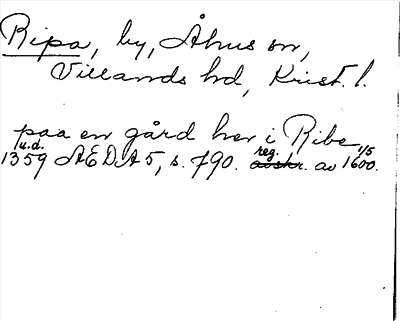 Ripa, by, Åhus sn,
Villands hd, Krist. l.
paa en gård her i Ribe
u.d. reg. 1/5
1359 ÆDA 5, s. 790. avskr. av 1600.